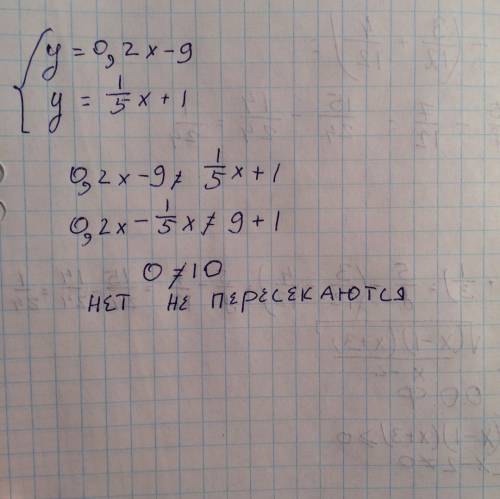 y = 0,2x-9
y = 1/5 x + 1
0,2x-9 ≠ 1/5 x + 1
0,2x - 1/5 x ≠ 9 + 1
0 ≠ 10
НЕТ НЕ ПЕРЕСЕКАЮТСЯ